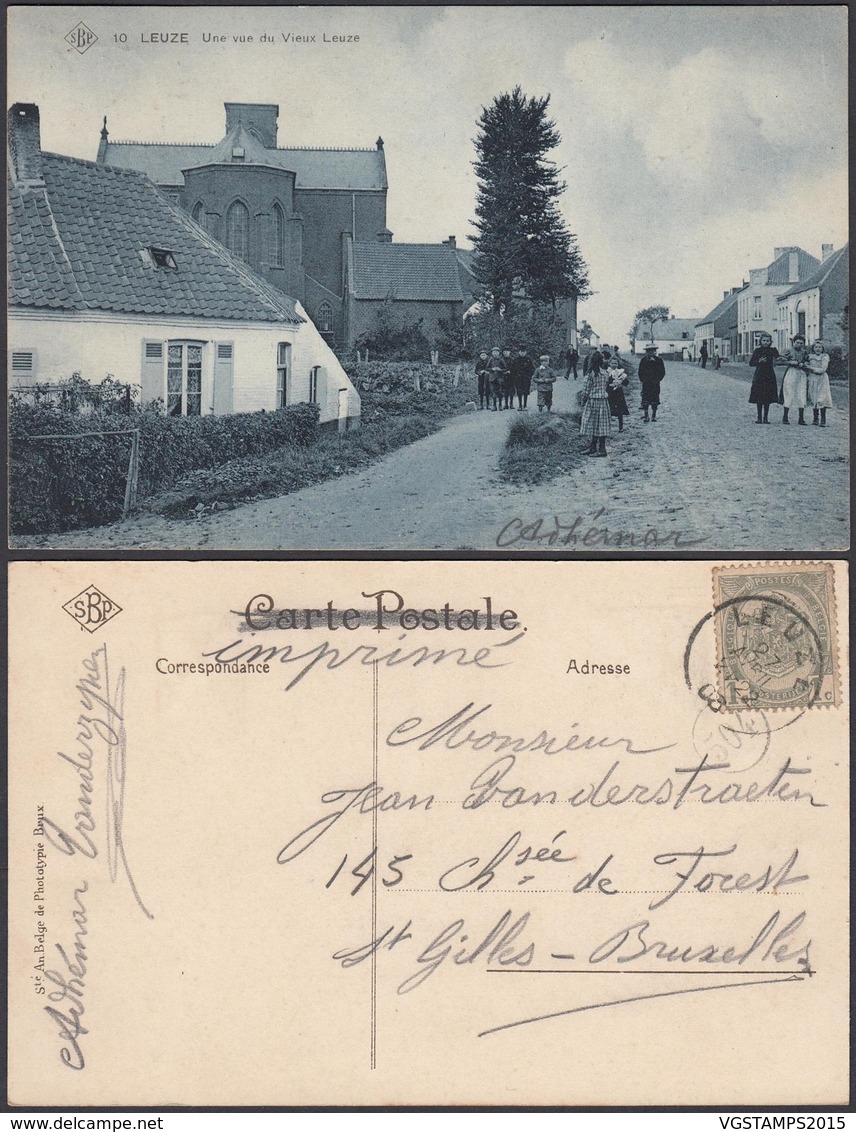 SBP 10 LEUZE Une vue du Vieux Leuze
Adhémar
SBP
Carte Postale
imprimé
Correspondance
Adresse
POSTES
LEUZE
AVRIL
22
08
1 C
Monsieur
Jean Vanderstraeten
145 Chsée de Forest
St Gilles - Bruxelles
Adhémar
Sté An. Belge de Phototypie Brux
VGSTAMPS2015